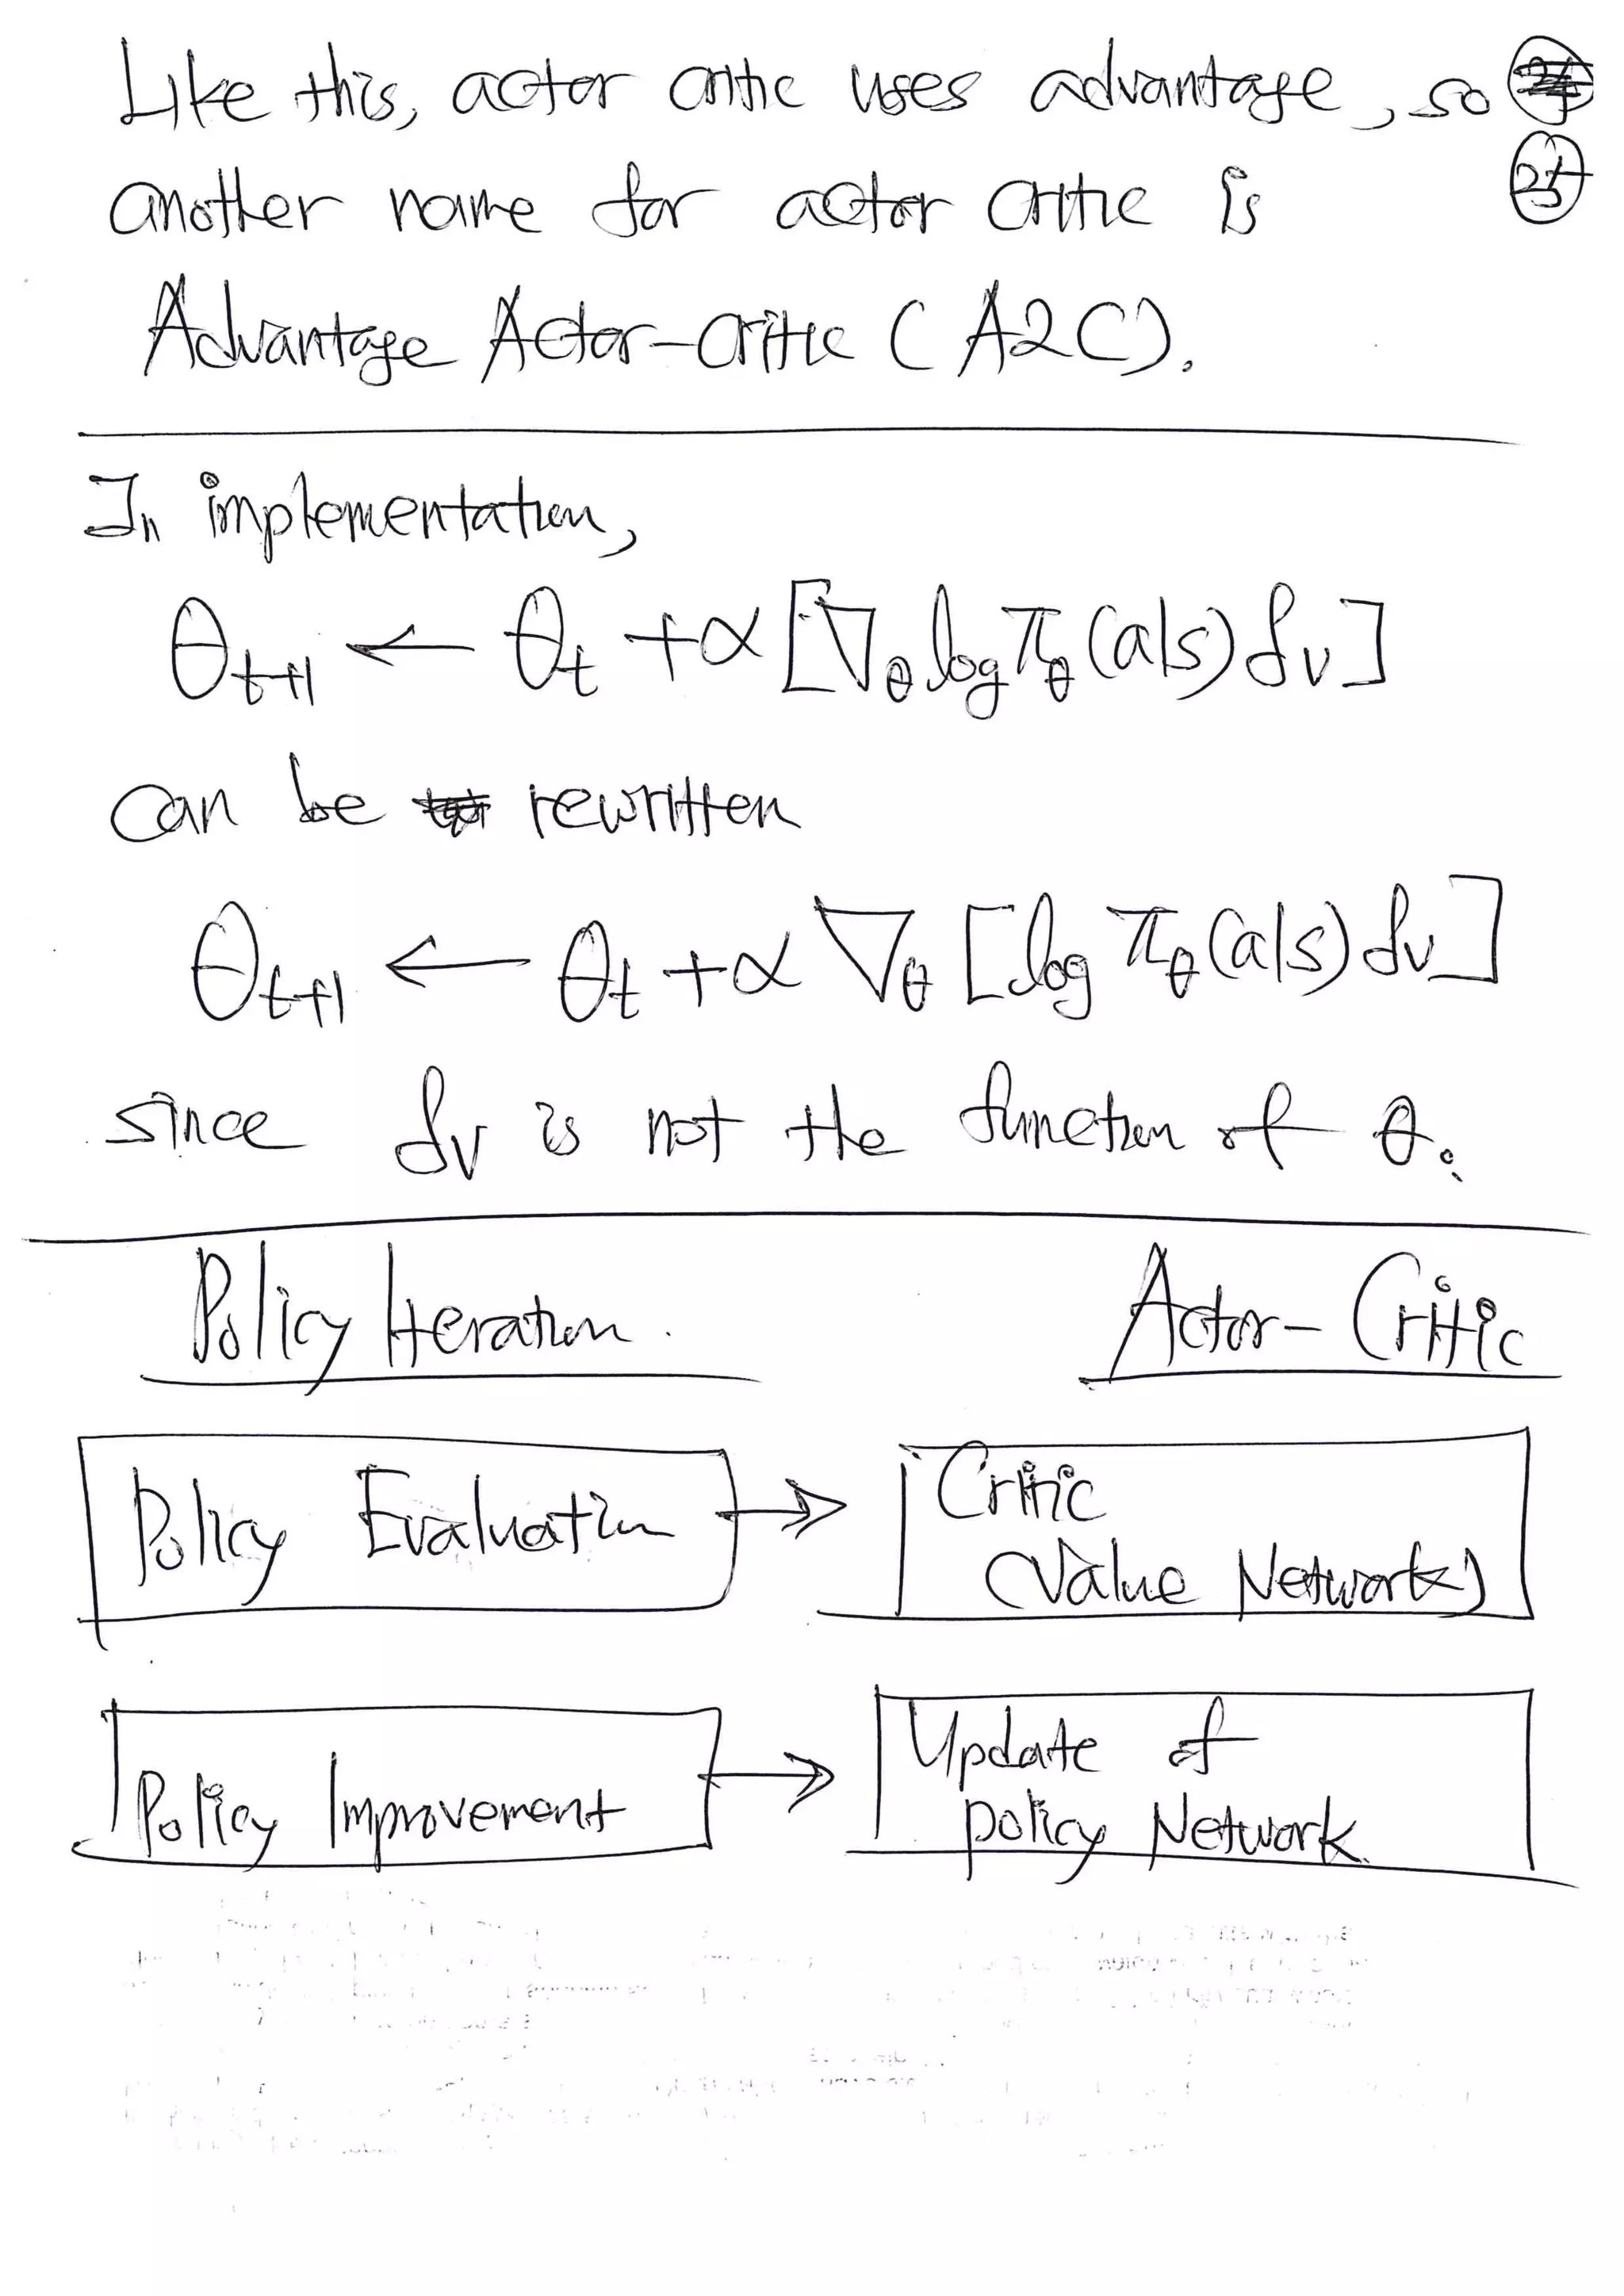 Like this, actor critic uses advantage, so
another name for actor critic is
Advantage Actor-critic (A2C).
In implementation,
θ_{t+1} ← θ_t + α [∇_θ log π_θ (a|s) δ_v]
can be rewritten
θ_{t+1} ← θ_t + α ∇_θ [log π_θ (a|s) δ_v]
since δ_v is not the function of θ.
Policy Iteration. Actor-Critic
Policy Evaluation → Critic
(Value Network)
Policy Improvement → Update of
policy Network.